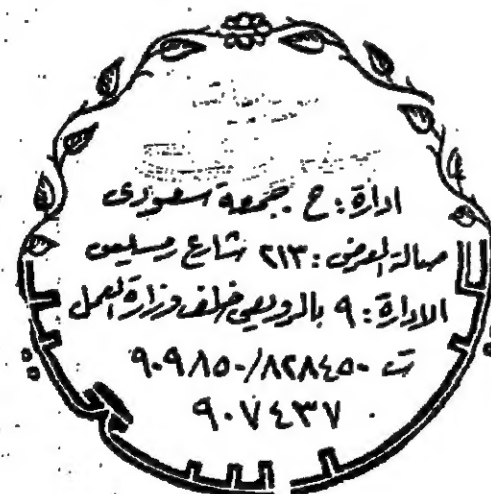 ادارة : ع . جمعة سعودى
صالة العرض : ٢١٣ شارع رمسيس
الادارة : ٩ بالرويعى خلف وزارة العمل
ت ٩٠٩٨٥٠/٨٢٨٤٥٠
٩٠٧٤٣٧